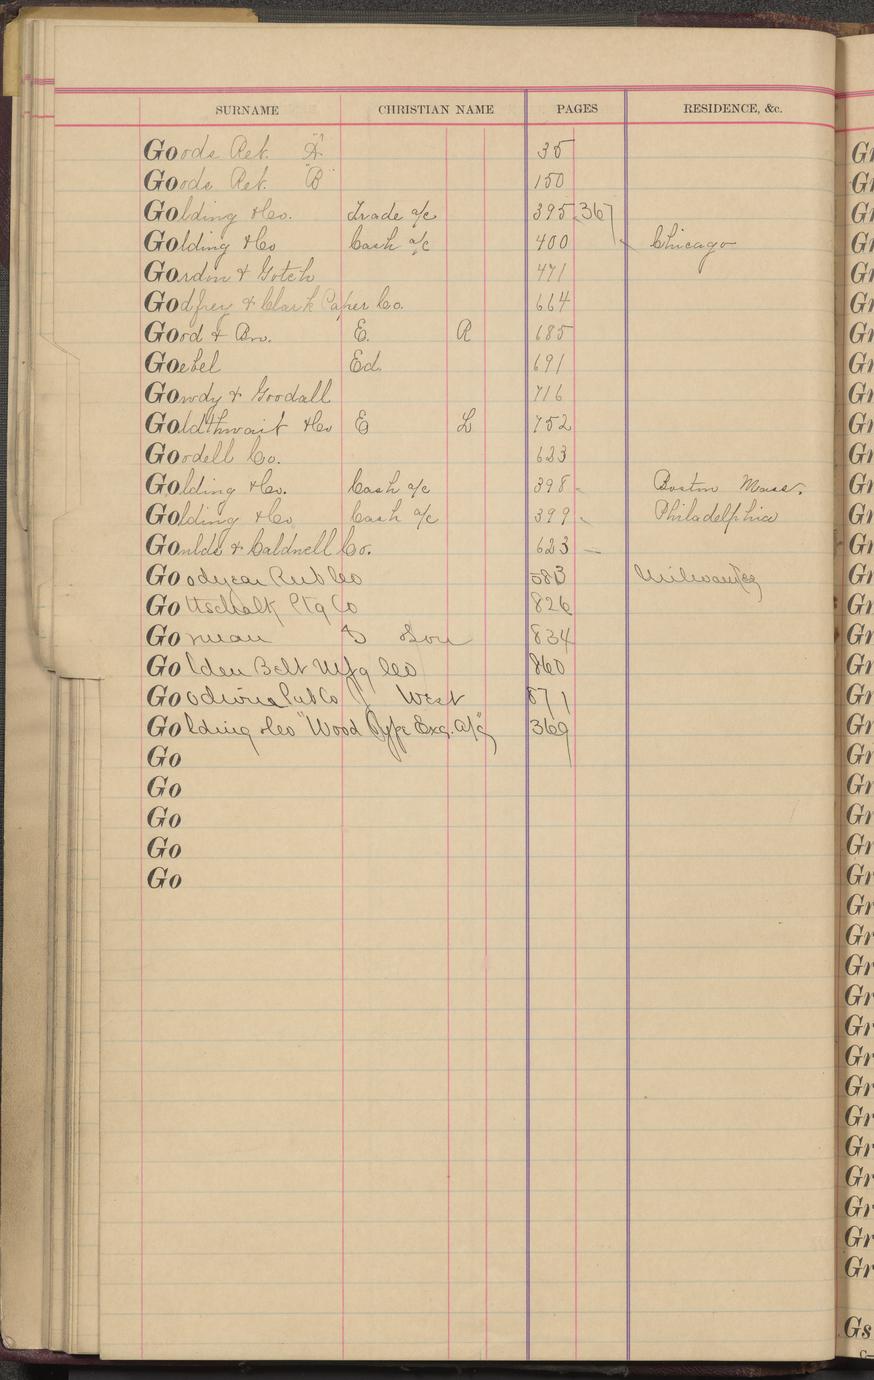 SURNAME CHRISTIAN NAME PAGES RESIDENCE, &c.
Goods Ret. "A" 35
Goods Ret. "B" 150
Golding & Co. Trade a/c 395 367
Golding & Co Cash a/c 400 Chicago
Gordon & Gotch 471
Godfrey & Clark Paper Co. 664
Good & Bro. E. R 685
Goebel Ed. 691
Gowdy & Goodall 716
Goldthwait & Co E L 752
Goodell Co. 623
Golding & Co. Cash a/c 398 Boston Mass.
Golding & Co Cash a/c 399 Philadelphia
Goulds & Caldwell Co. 623
Goodyear Rub Co 583 Milwaukee
Gottschalk Ptg Co 826
Gorman & Son 834
Golden Belt Mfg Co 860
Goodwins Pub Co J West 871
Golding & Co "Wood Type Exc. a/c" 369
Go
Go
Go
Go
Go
Gr
Gr
Gr
Gr
Gr
Gr
Gr
Gr
Gr
Gr
Gr
Gr
Gr
Gr
Gr
Gr
Gr
Gr
Gr
Gr
Gr
Gr
Gr
Gr
Gr
Gr
Gr
Gr
Gr
Gr
Gr
Gr
Gr
Gr
Gs